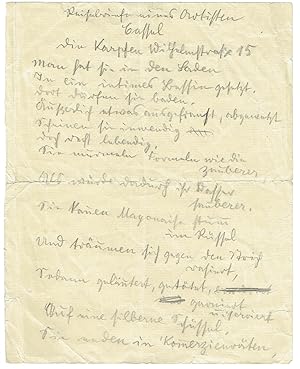 Reisebriefe eines Artisten
Cassel
Die Karpfen Wilhelmstraße 15
Man hat sie in den Laden
In ein intimes Bassin gesetzt.
Dort dürfen sie baden.
Äußerlich etwas ausgefranst, abgewetzt
Scheinen sie inwendig
doch recht lebendig.
Sie murmeln Formeln wie die
Zauberer
Als würde dadurch ihr Wasser
sauberer.
Sie kauen Mayonaise stumm
im Rüssel
Und träumen sich gegen den Strich
rasiert,
Sodann geläutert, getötet,
garniert
u serviert
Auf eine silberne Schüssel.
Sie enden in Komerzienräten,